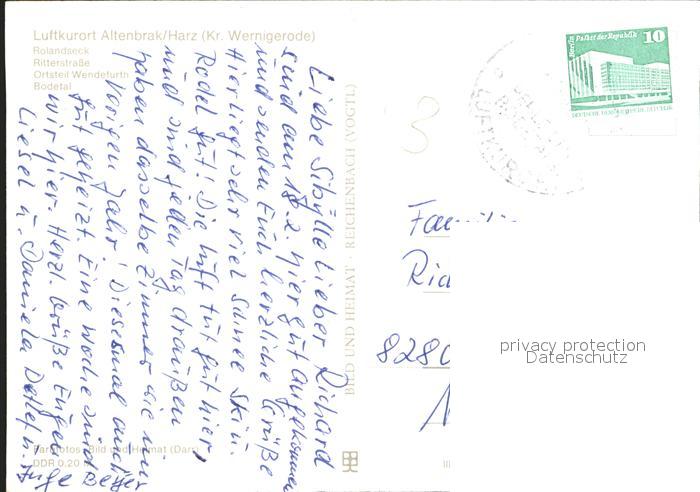 Luftkurort Altenbrak/Harz (Kr. Wernigerode)
Rolandseck
Ritterstraße
Ortsteil Wendefurth
Bodetal
Liebe Sibylle Lieber Richard
sind am 18.2. hier gut angekommen
und senden Euch herzliche Grüße
Hier liegt sehr viel Schnee Ski u.
Rodel gut! Die Luft tut gut hier,
und sind jeden Tag draußen
haben dasselbe Zimmer wie im
vorigen Jahr! Diesesmal auch
gut geheizt. Eine Woche sind
wir hier. Herzl. Grüße Eugen
Liesel u. Daniela Detlef u.
Inge
BILD UND HEIMAT · REICHENBACH (VOGTL)
Farbfotos: Bild und Heimat
DDR 0,20
III
Berlin Palast der Republik
10
DEUTSCHE DEMOKRATISCHE REPUBLIK
LUFTKUR
3
Fam
Ric
8280
privacy protection
Datenschutz